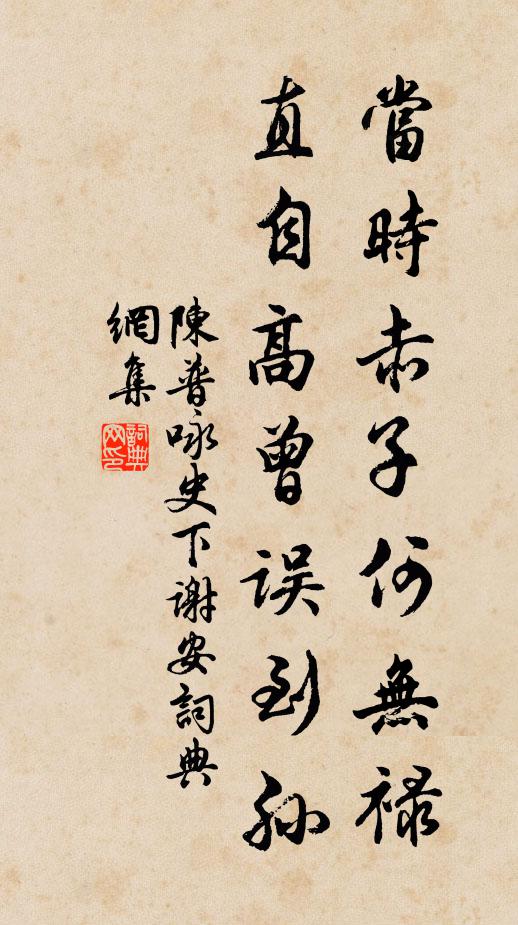 當時赤子何無禄
直自高曾误到孫
陳普咏史下謝安詞典
網集
詞典
网印